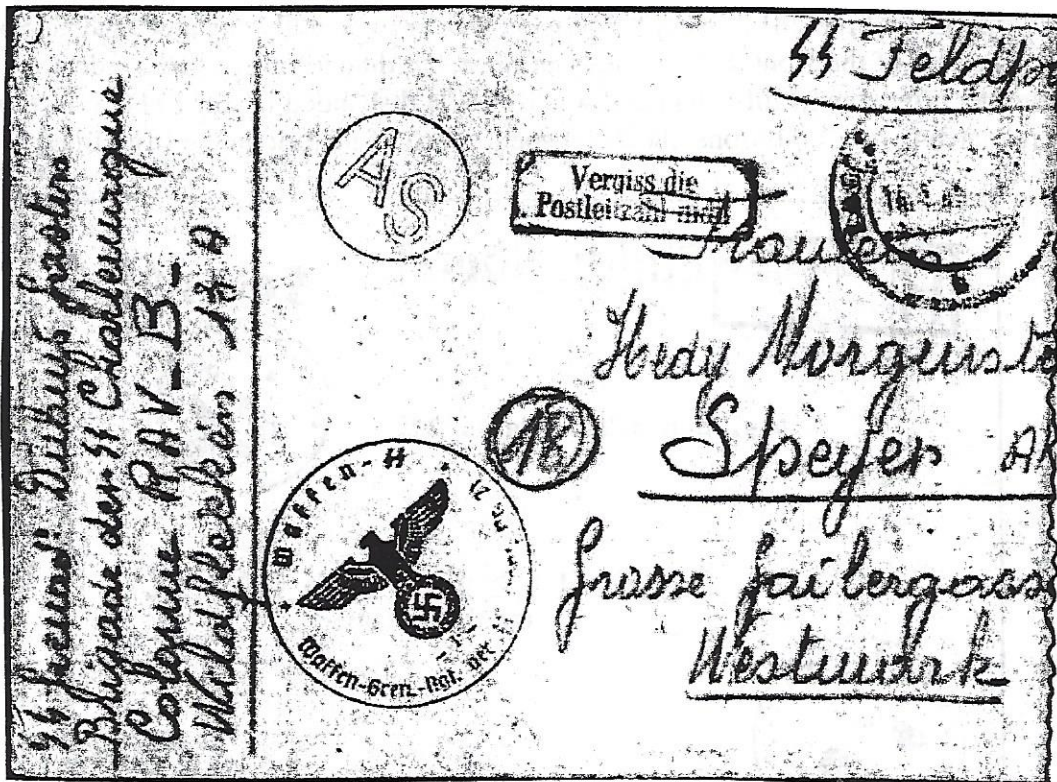 SS Feldp
AS
Vergiss die
Postleitzahl nicht
Hedy Morgenste
Speyer
Grosse Gailergass
Westmark
18
Waffen-SS
Waffen-Gren.-Rgt. der SS
SS
Brigade der SS Charlemagne
Colonne RAV-B-
Wildflecken 13 A